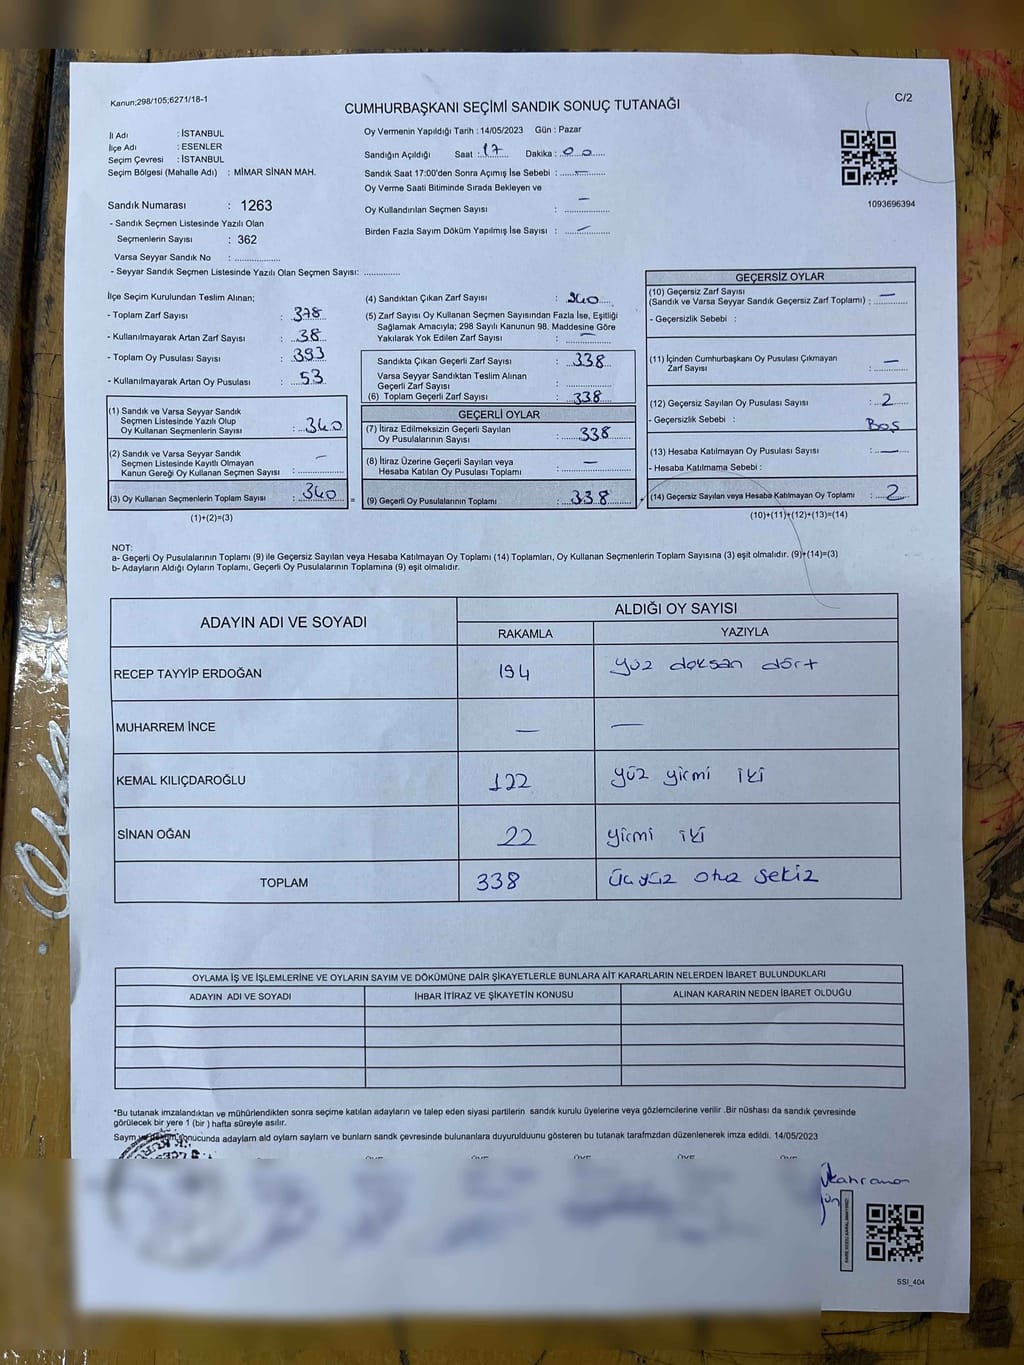 Kanun;298/105;6271/18-1
CUMHURBAŞKANI SEÇİMİ SANDIK SONUÇ TUTANAĞI
C/2
İl Adı : İSTANBUL
İlçe Adı : ESENLER
Seçim Çevresi : İSTANBUL
Seçim Bölgesi (Mahalle Adı) : MİMAR SİNAN MAH.
Sandık Numarası : 1263
- Sandık Seçmen Listesinde Yazılı Olan
Seçmenlerin Sayısı : 362
Varsa Seyyar Sandık No : ..............
- Seyyar Sandık Seçmen Listesinde Yazılı Olan Seçmen Sayısı: ............
Oy Vermenin Yapıldığı Tarih : 14/05/2023 Gün : Pazar
Sandığın Açıldığı Saat : 17 Dakika : 00
Sandık Saat 17:00'den Sonra Açımış İse Sebebi : —
Oy Verme Saati Bitiminde Sırada Bekleyen ve
Oy Kullandırılan Seçmen Sayısı : —
Birden Fazla Sayım Döküm Yapılmış İse Sayısı : —
1093696394
İlçe Seçim Kurulundan Teslim Alınan;
- Toplam Zarf Sayısı : 378
- Kullanılmayarak Artan Zarf Sayısı : 38
- Toplam Oy Pusulası Sayısı : 393
- Kullanılmayarak Artan Oy Pusulası : 53
(1) Sandık ve Varsa Seyyar Sandık
Seçmen Listesinde Yazılı Olup
Oy Kullanan Seçmenlerin Sayısı : 340
(2) Sandık ve Varsa Seyyar Sandık
Seçmen Listesinde Kayıtlı Olmayan
Kanun Gereği Oy Kullanan Seçmen Sayısı : —
(3) Oy Kullanan Seçmenlerin Toplam Sayısı : 340 =
(1)+(2)=(3)
(4) Sandıktan Çıkan Zarf Sayısı : 340
(5) Zarf Sayısı Oy Kullanan Seçmen Sayısından Fazla İse, Eşitliği
Sağlamak Amacıyla; 298 Sayılı Kanunun 98. Maddesine Göre
Yakılarak Yok Edilen Zarf Sayısı : —
Sandıkta Çıkan Geçerli Zarf Sayısı : 338
Varsa Seyyar Sandıktan Teslim Alınan
Geçerli Zarf Sayısı : ............
(6) Toplam Geçerli Zarf Sayısı : 338
GEÇERLİ OYLAR
(7) İtiraz Edilmeksizin Geçerli Sayılan
Oy Pusulalarının Sayısı : 338
(8) İtiraz Üzerine Geçerli Sayılan veya
Hesaba Katılan Oy Pusulası Toplamı : —
(9) Geçerli Oy Pusulalarının Toplamı : 338 +
GEÇERSİZ OYLAR
(10) Geçersiz Zarf Sayısı
(Sandık ve Varsa Seyyar Sandık Geçersiz Zarf Toplamı) : —
- Geçersizlik Sebebi :
(11) İçinden Cumhurbaşkanı Oy Pusulası Çıkmayan
Zarf Sayısı : —
(12) Geçersiz Sayılan Oy Pusulası Sayısı : 2
- Geçersizlik Sebebi : Boş
(13) Hesaba Katılmayan Oy Pusulası Sayısı : —
- Hesaba Katılmama Sebebi :
(14) Geçersiz Sayılan veya Hesaba Katılmayan Oy Toplamı : 2
(10)+(11)+(12)+(13)=(14)
NOT:
a- Geçerli Oy Pusulalarının Toplamı (9) ile Geçersiz Sayılan veya Hesaba Katılmayan Oy Toplamı (14) Toplamları, Oy Kullanan Seçmenlerin Toplam Sayısına (3) eşit olmalıdır. (9)+(14)=(3)
b- Adayların Aldığı Oyların Toplamı, Geçerli Oy Pusulalarının Toplamına (9) eşit olmalıdır.
ADAYIN ADI VE SOYADI ALDIĞI OY SAYISI
RAKAMLA YAZIYLA
RECEP TAYYİP ERDOĞAN 194 yüz doksan dört
MUHARREM İNCE — —
KEMAL KILIÇDAROĞLU 122 yüz yirmi iki
SİNAN OĞAN 22 yirmi iki
TOPLAM 338 üçyüz otuz sekiz
OYLAMA İŞ VE İŞLEMLERİNE VE OYLARIN SAYIM VE DÖKÜMÜNE DAİR ŞİKAYETLERLE BUNLARA AİT KARARLARIN NELERDEN İBARET BULUNDUKLARI
ADAYIN ADI VE SOYADI İHBAR İTİRAZ VE ŞİKAYETİN KONUSU ALINAN KARARIN NEDEN İBARET OLDUĞU
*Bu tutanak imzalandıktan ve mühürlendikten sonra seçime katılan adayların ve talep eden siyasi partilerin sandık kurulu üyelerine veya gözlemcilerine verilir .Bir nüshası da sandık çevresinde
görülecek bir yere 1 (bir ) hafta süreyle asılır.
Sayım ve döküm sonucunda adayların ald oyların saylarn ve bunların sandk çevresinde bulunanlara duyurulduunu gösteren bu tutanak tarafmzdan düzenlenerek imza edildi. 14/05/2023
SSI_404